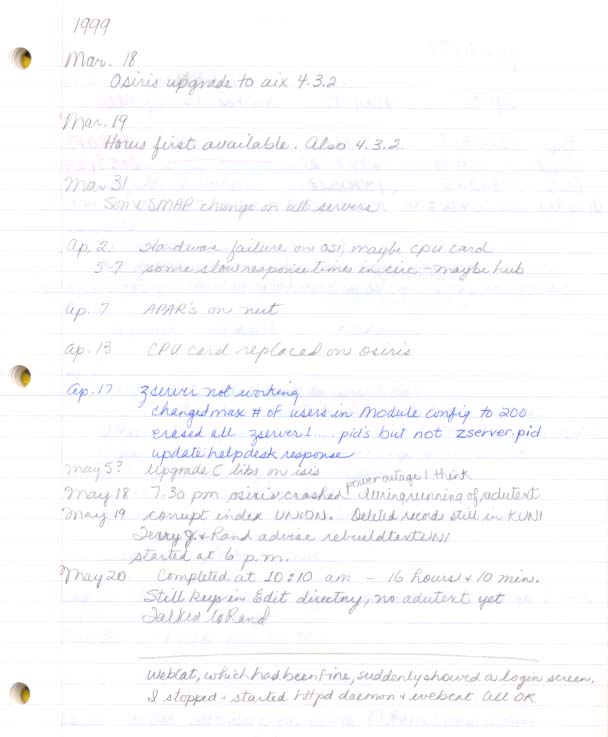 1999
Mar. 18
Osiris upgrade to aix 4.3.2
Mar. 19
Horus first available. Also 4.3.2.
Mar 31
SMAP change on all servers
Ap. 2. Hardware failure on osi, maybe cpu card
5-7 some slow response times in circ - maybe hub
Ap. 7 APAR's on nut
Ap. 13 CPU card replaced on osiris
Ap. 17 zserver not working
changed max # of users in Module config to 200
erased all zserver1..... pid's but not zserver.pid
update helpdesk response
May 5? Upgrade C libs on isis
power outage I think
May 18 7:30 pm osiris crashed during running of adutext
May 19 corrupt index UNION. Deleted records still in KUNI
Terry J. & Rand advise rebuildtextUNI
started at 6 p.m.
May 20 Completed at 10:10 am - 16 hours & 10 min.
Still keys in Edit directory, no adutext yet
Talked to Rand
Webcat, which had been fine, suddenly showed a login screen.
I stopped & started httpd daemon & webcat. All OK